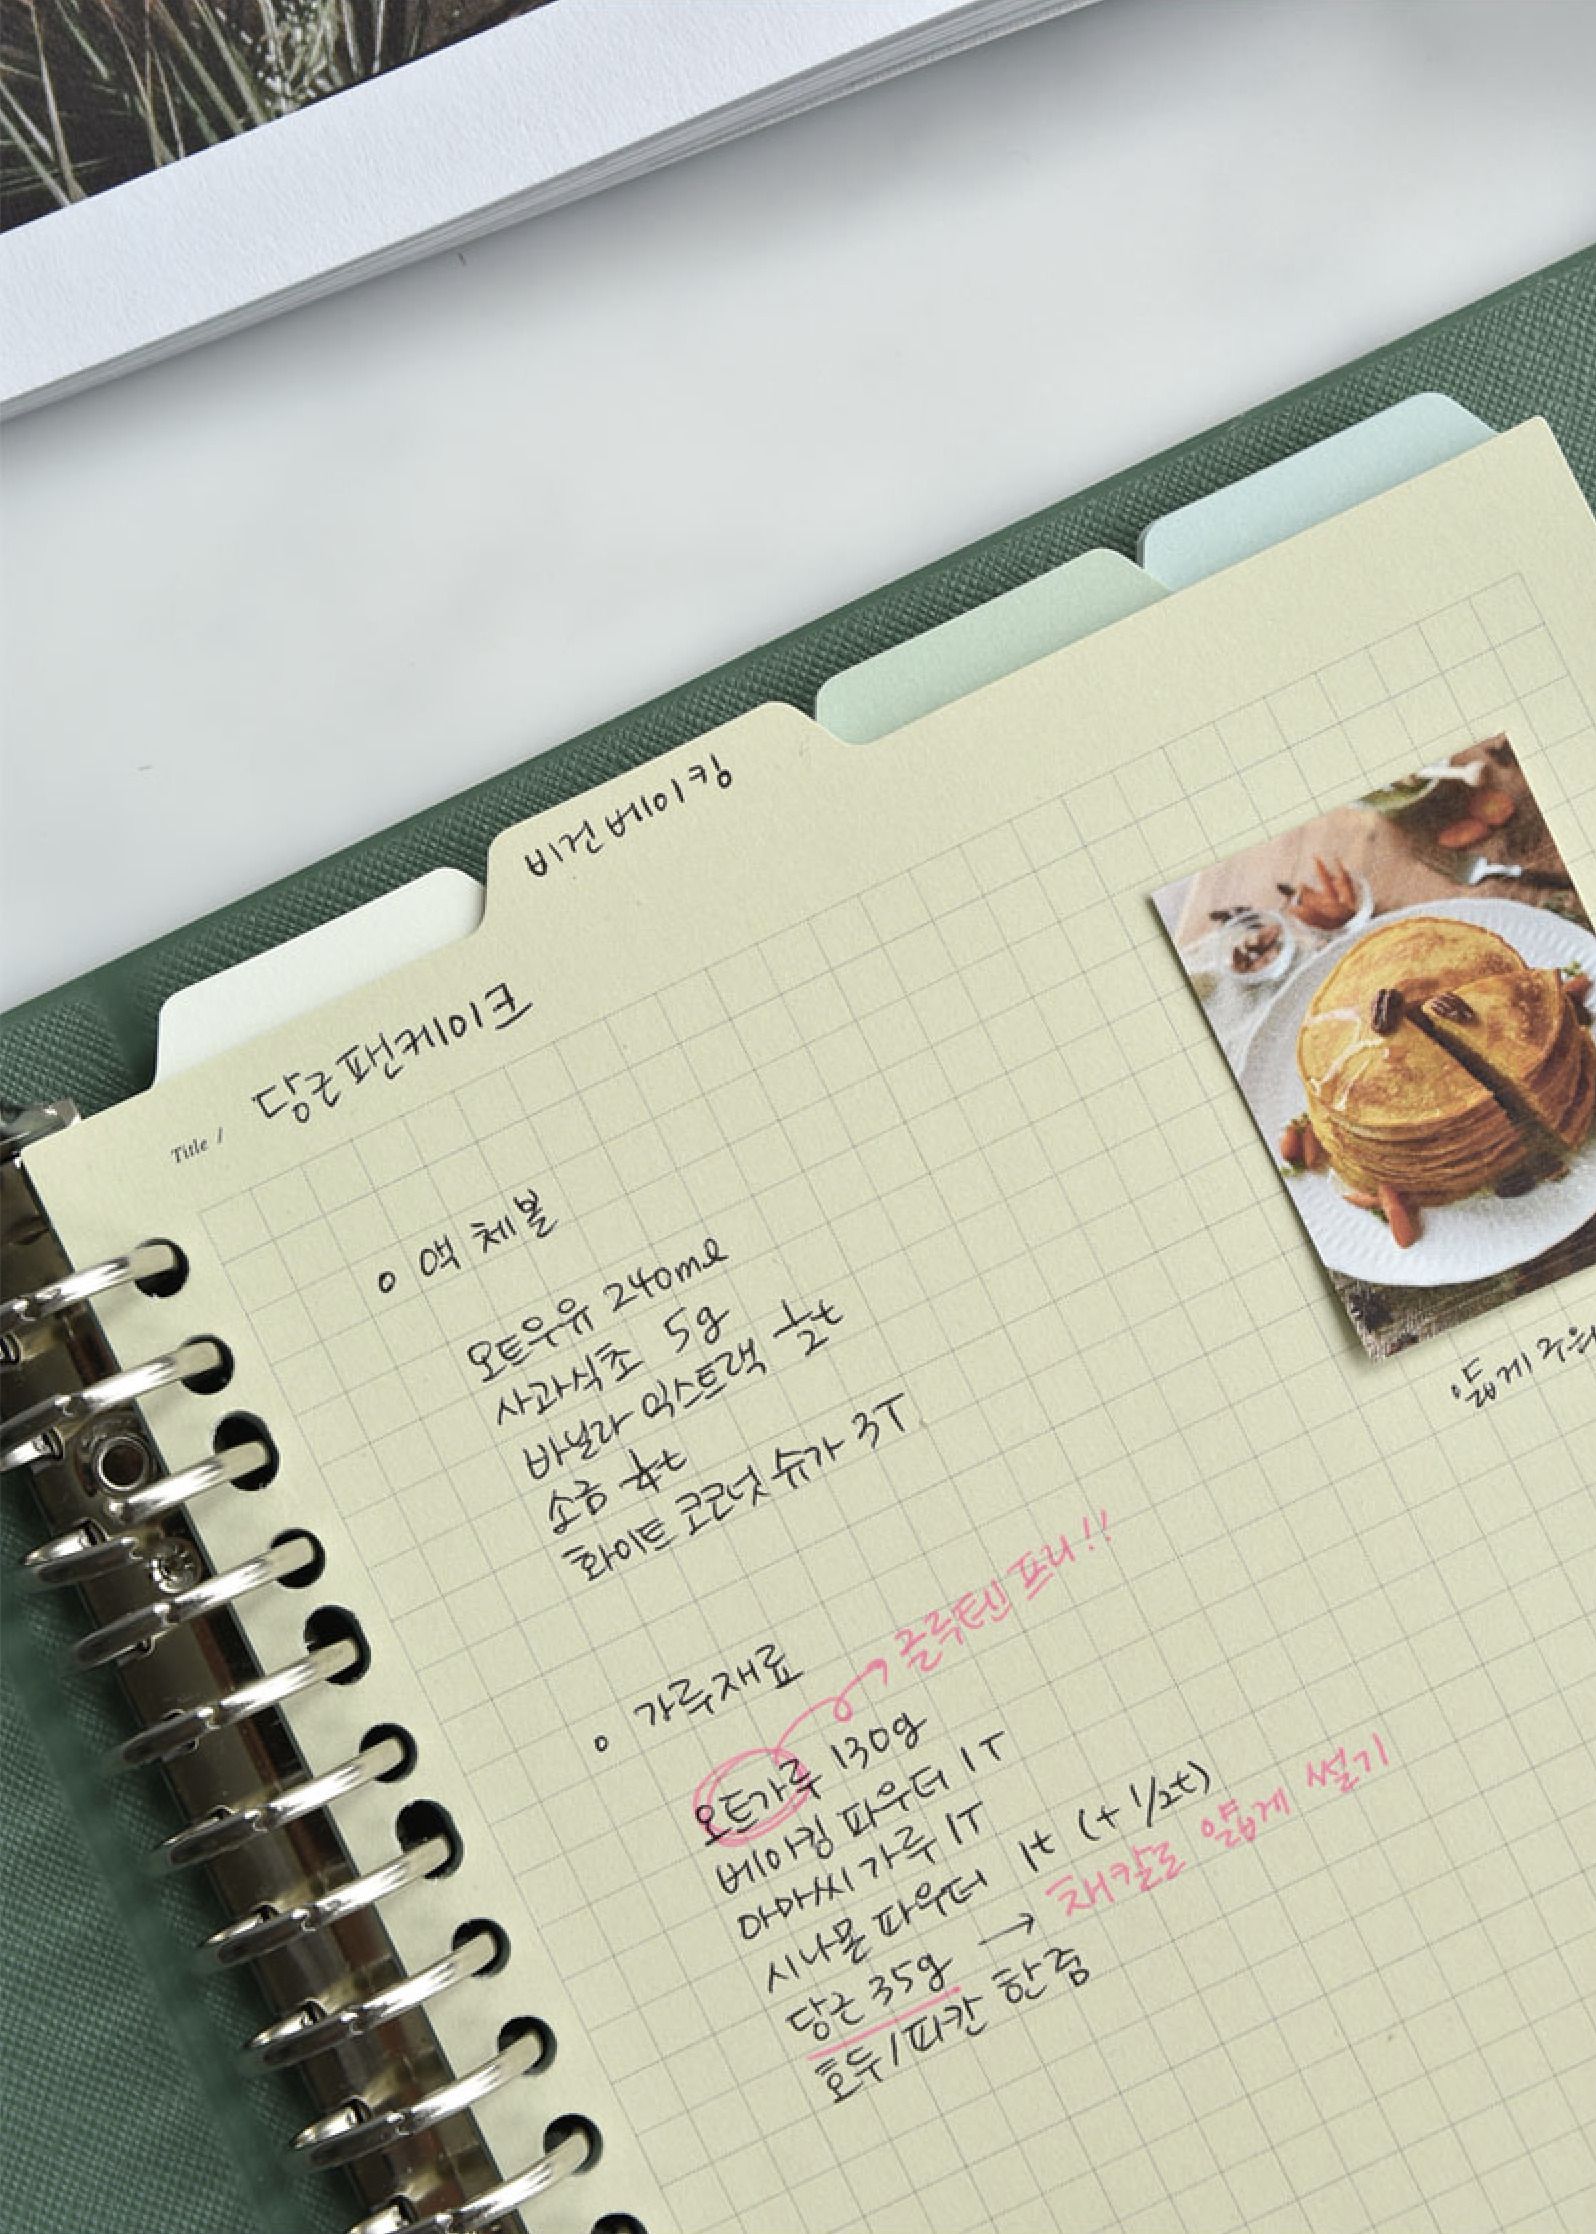 비건베이킹
Title / 당근팬케이크
액체볼
오트우유 240ml
사과식초 5g
바닐라 익스트랙 1/2t
소금
화이트 코코넛 슈가 3T
글루텐 프리!!
가루재료
오트가루 130g
베이킹 파우더 1T
아마씨가루 1T
시나몬 파우더 1t (+1/2t)
당근 35g → 채칼로 얇게 썰기
호두/피칸 한줌
얇게